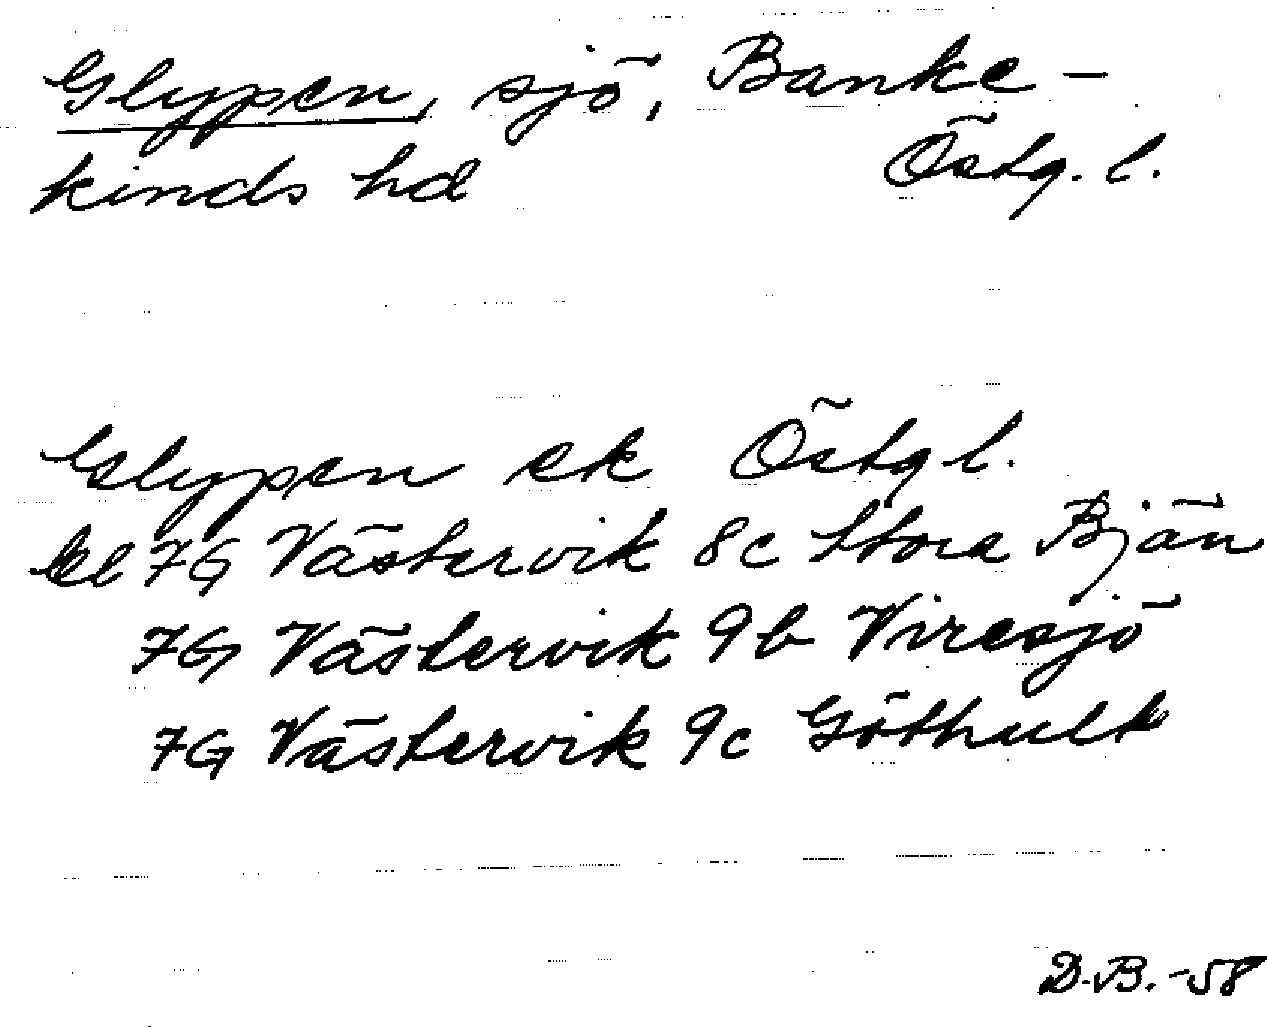 Glypen, sjö, Banke-
kinds hd Östg. l.
Glypen ek Östg l.
bl 7G Västervik 8c Stora Bjän
7G Västervik 9b Viresjö
7G Västervik 9c Göthult
D.B. -58